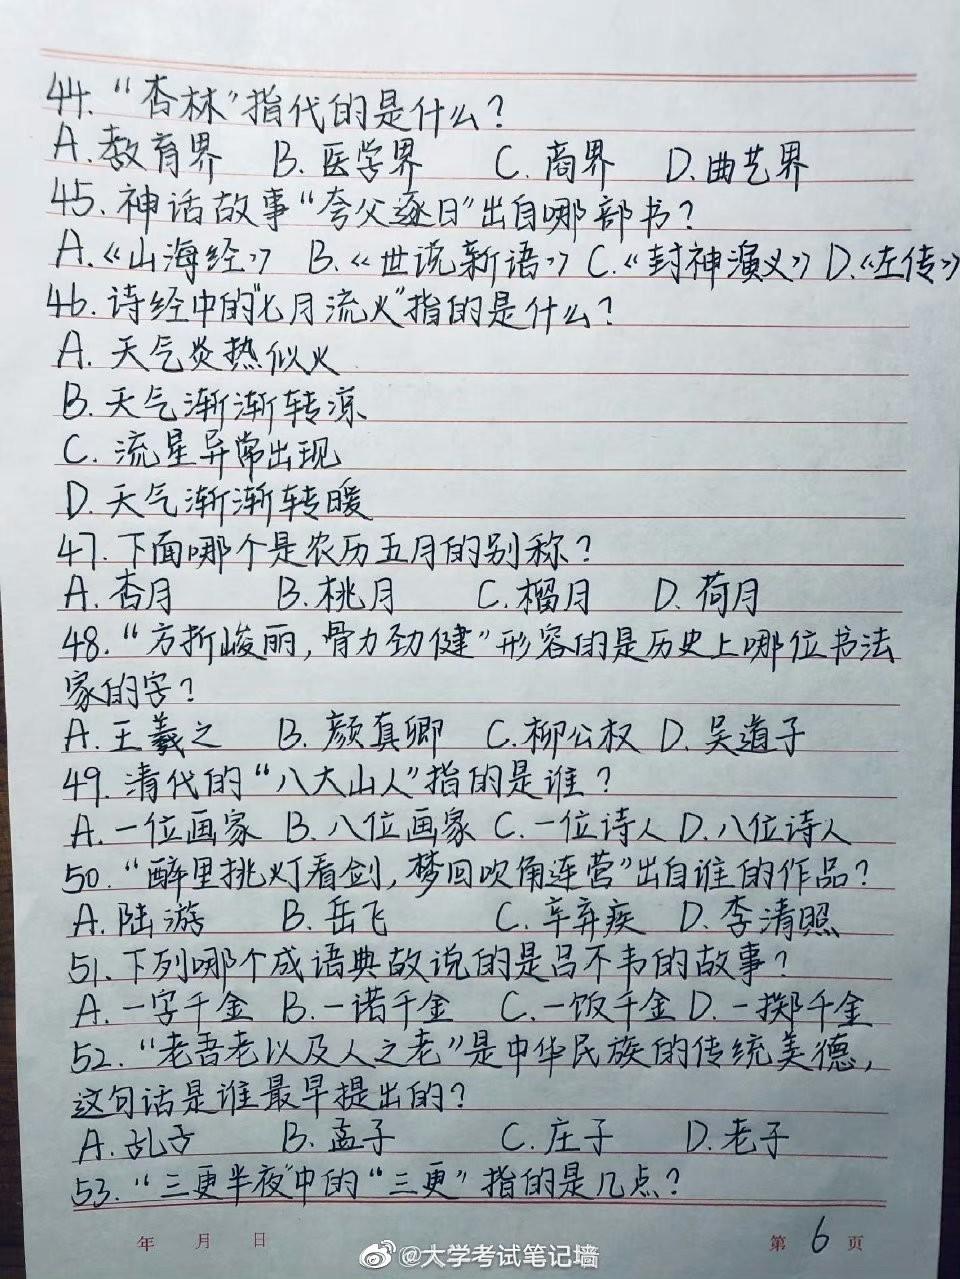 44. “杏林”指代的是什么?
A. 教育界 B. 医学界 C. 商界 D. 曲艺界
45. 神话故事“夸父逐日”出自哪部书?
A.《山海经》 B.《世说新语》 C.《封神演义》 D.《左传》
46. 诗经中的“七月流火”指的是什么?
A. 天气炎热似火
B. 天气渐渐转凉
C. 流星异常出现
D. 天气渐渐转暖
47. 下面哪个是农历五月的别称?
A. 杏月 B. 桃月 C. 榴月 D. 荷月
48. “方折峻丽, 骨力劲健”形容的是历史上哪位书法
家的字?
A. 王羲之 B. 颜真卿 C. 柳公权 D. 吴道子
49. 清代的“八大山人”指的是谁?
A. 一位画家 B. 八位画家 C. 一位诗人 D. 八位诗人
50. “醉里挑灯看剑, 梦回吹角连营”出自谁的作品?
A. 陆游 B. 岳飞 C. 辛弃疾 D. 李清照
51. 下列哪个成语典故说的是吕不韦的故事?
A. 一字千金 B. 一诺千金 C. 一饭千金 D. 一掷千金
52. “老吾老以及人之老”是中华民族的传统美德,
这句话是谁最早提出的?
A. 孔子 B. 孟子 C. 庄子 D. 老子
53. “三更半夜”中的“三更”指的是几点?
年 月 日 第 6 页
@大学考试笔记墙